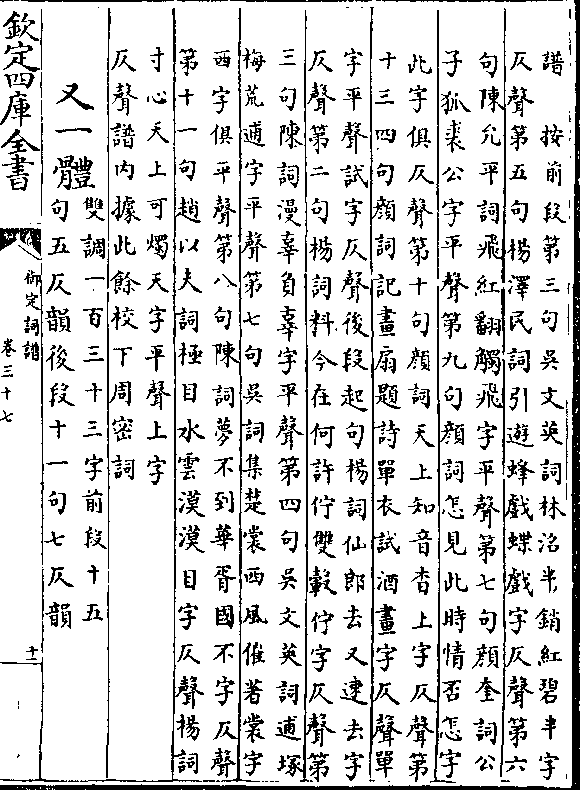 譜　按前段第三句吳文英詞林沼半銷紅碧半字
仄聲第五句楊澤民詞引遊蜂戲蝶戲字仄聲第六
句陳允平詞飛紅翻觸飛字平聲第七句顔奎詞公
子狐裘公字平聲第九句顔詞怎見此時情否怎字
此字俱仄聲第十句顔詞天上知音杳上字仄聲第
十三四句顔詞記畫扇題詩單衣試酒畫字仄聲單
字平聲試字仄聲後段起句楊詞仙郎去又逮去字
仄聲第二句楊詞料今在何許佇雙轂佇字仄聲第
三句陳詞漫辜負辜字平聲第四句吳文英詞逋塚
梅荒逋字平聲第七句吳詞集楚裳西風催著裳字
西字俱平聲第八句陳詞夢不到華胥國不字仄聲
第十一句趙以夫詞極目水雲漠漠目字仄聲楊詞
寸心天上可燭天字平聲上字
仄聲譜内據此餘校下周密詞
又一體
雙調一百三十三字前段十五
句五仄韻後段十一句七仄韻
欽定四庫全書
御定詞譜
卷三十七
十二